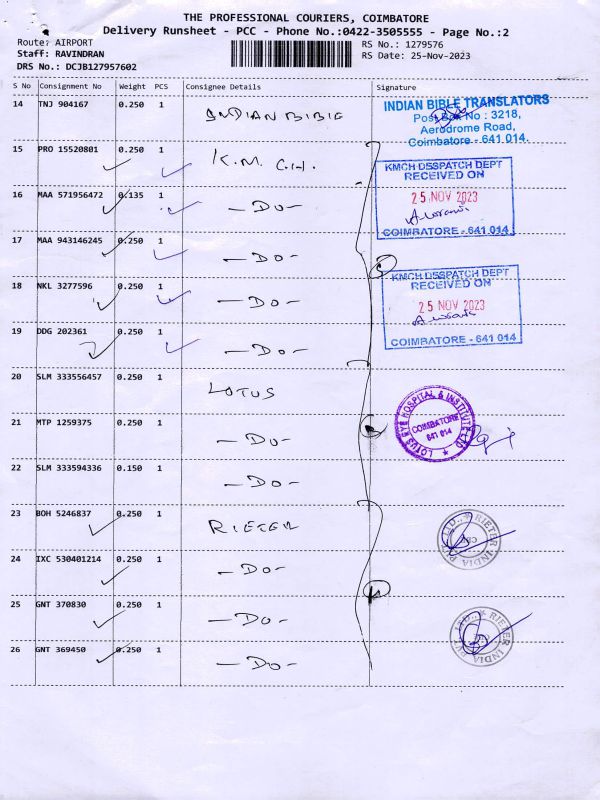 THE PROFESSIONAL COURIERS, COIMBATORE
Delivery Runsheet - PCC - Phone No.:0422-3505555 - Page No.:2
Route: AIRPORT
Staff: RAVINDRAN
DRS No.: DCJB127957602
RS No.: 1279576
RS Date: 25-Nov-2023
S No Consignment No Weight PCS Consignee Details Signature
14 TNJ 904167 0.250 1 INDIAN BIBLE
INDIAN BIBLE TRANSLATORS
Post Box No : 3218,
Aerodrome Road,
Coimbatore - 641 014.
15 PRO 15520801 0.250 1 K.M.C.H.
KMCH DESPATCH DEPT
RECEIVED ON
25 NOV 2023
COIMBATORE - 641 014
16 MAA 571956472 0.135 1 -DO-
17 MAA 943146245 0.250 1 -DO-
18 NKL 3277596 0.250 1 -DO-
KMCH DESPATCH DEPT
RECEIVED ON
25 NOV 2023
COIMBATORE - 641 014
19 DDG 202361 0.250 1 -DO-
20 SLM 333556457 0.250 1 LOTUS
21 MTP 1259375 0.250 1 -DO-
LOTUS EYE HOSPITAL & INSTITUTE LTD
COIMBATORE
641 014
22 SLM 333594336 0.150 1 -DO-
23 BOH 5246837 0.250 1 RIETER
RIETER INDIA PVT. LTD.
24 IXC 530401214 0.250 1 -DO-
25 GNT 370830 0.250 1 -DO-
RIETER INDIA PVT. LTD.
26 GNT 369450 0.250 1 -DO-